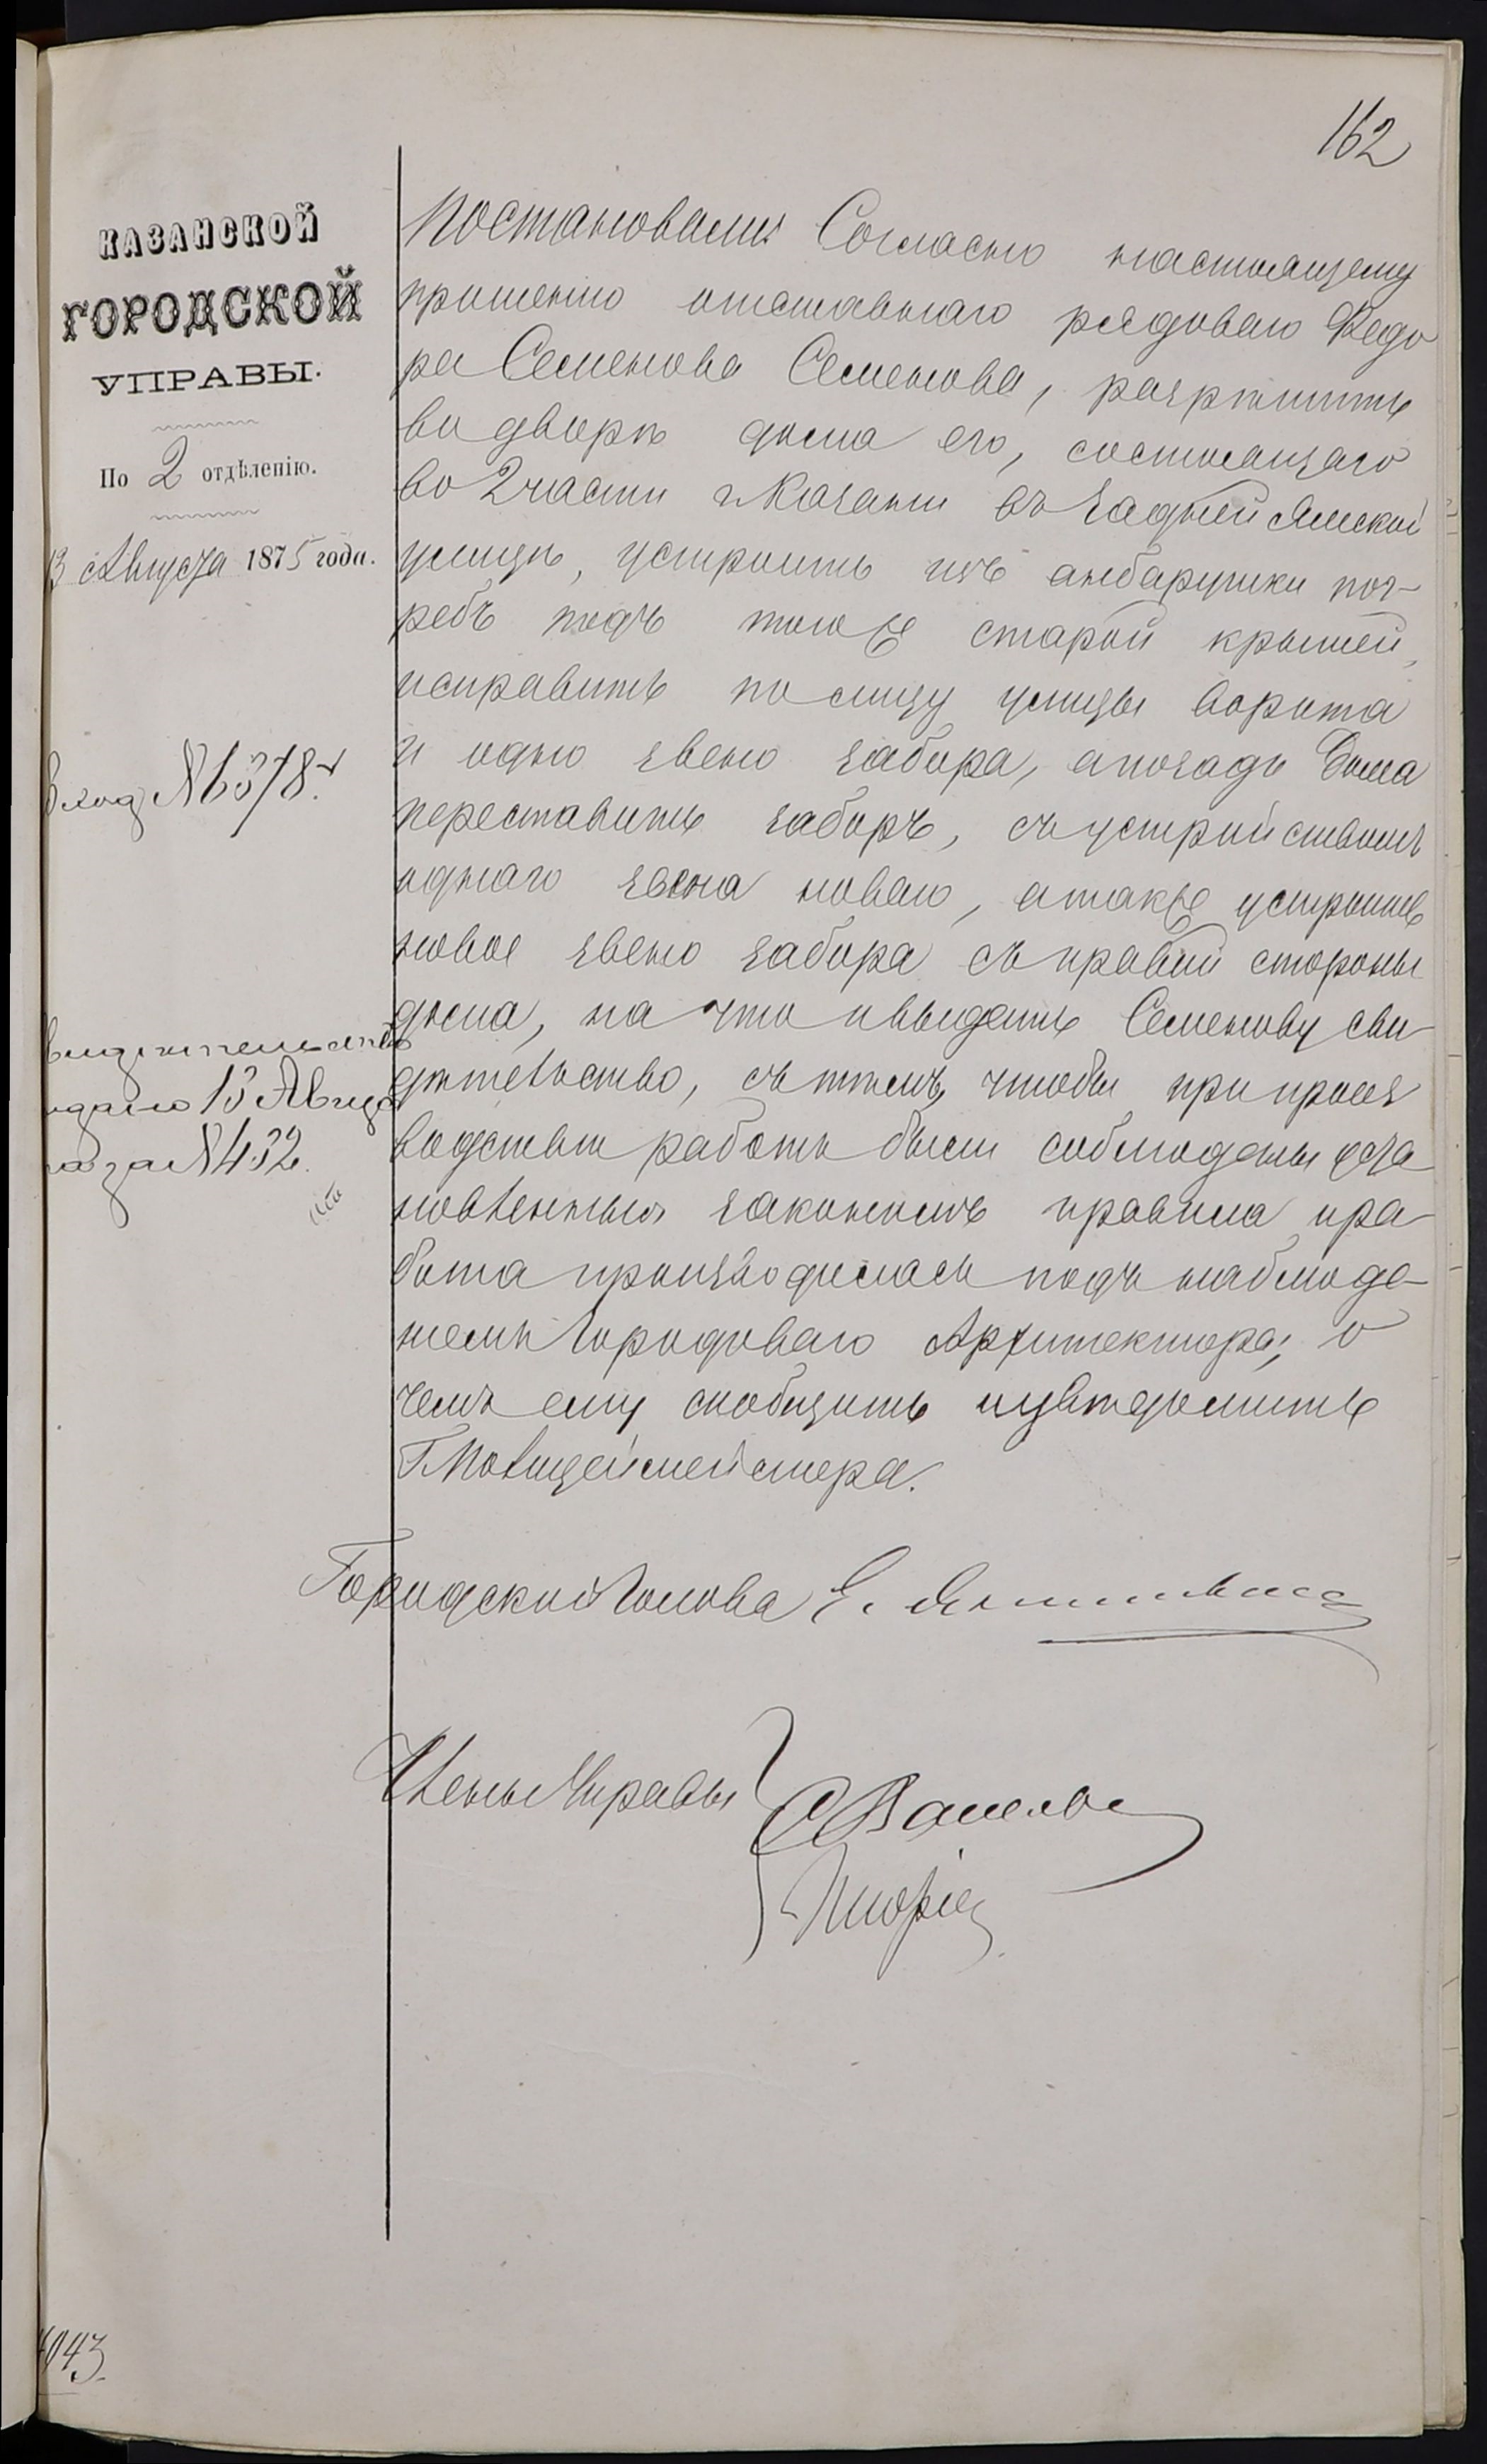 162
КАЗАНСКОЙ
ГОРОДСКОЙ
УПРАВЫ.
По 2 отдѣленію.
13 Августа 1875 года.
вход № 6378.
видѣтельство
ыдано 13 Авгус
та за № 432.
Постановили: Согласно настоящему
прошенію отставнаго рядоваго Федо
ра Семенова Семенова, разрѣшить
во дворѣ дома его, состоящаго
во 2 части г. Казани въ Задней Ямской
улицѣ, устроить изъ анбарушки пог-
ребъ подъ тою же старой крышей,
исправить по лицу улицы ворота
и одно звено забора, а позади дома
переставить заборъ, съ устройствомъ
однаго звена новаго, а также устроить
новое звено забора съ правой стороны
дома, на что и выдать Семенову сви-
дѣтельство, съ тѣмъ, чтобы при произ
водствѣ работъ были соблюдены уста
новленныя закономъ правила и ра-
бота производилась подъ наблюде-
ніемъ Городоваго Архитектора; о
чемъ ему сообщить и увѣдомить
Г. Полицеймейстера.
Городской Голова Е.
Члены Управы
1043